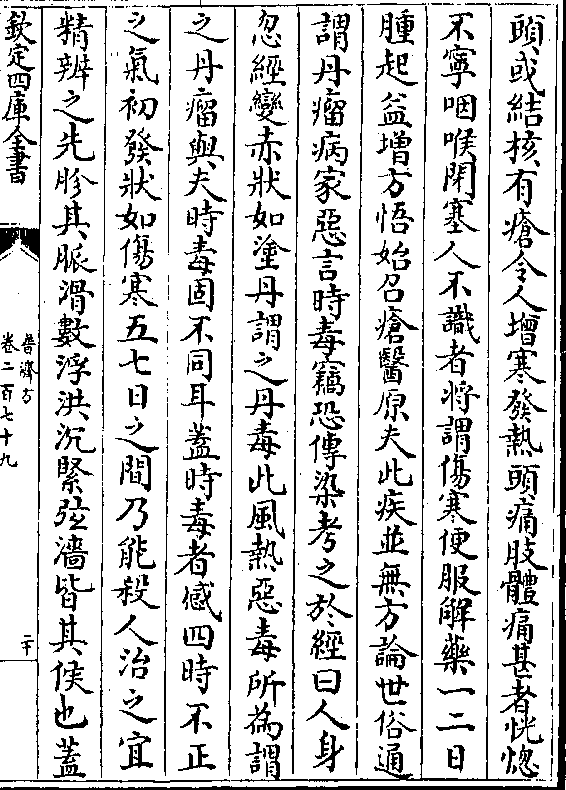 頭或結核有瘡令人增寒發熱頭痛肢體痛甚者恍惚
不寧咽喉閉塞人不識者將謂傷寒便服解藥一二日
腫起益增方悟始召瘡醫原夫此疾並無方論世俗通
謂丹瘤病家惡言時毒竊恐傳染考之於經曰人身
忽經變赤狀如塗丹謂之丹毒此風熱惡毒所為謂
之丹瘤與夫時毒固不同耳蓋時毒者感四時不正
之氣初發狀如傷寒五七日之間乃能殺人治之宜
精辨之先胗其脈滑數浮洪沉緊弦濇皆其候也蓋
欽定四庫全書
普濟方
卷二百七十九
二十